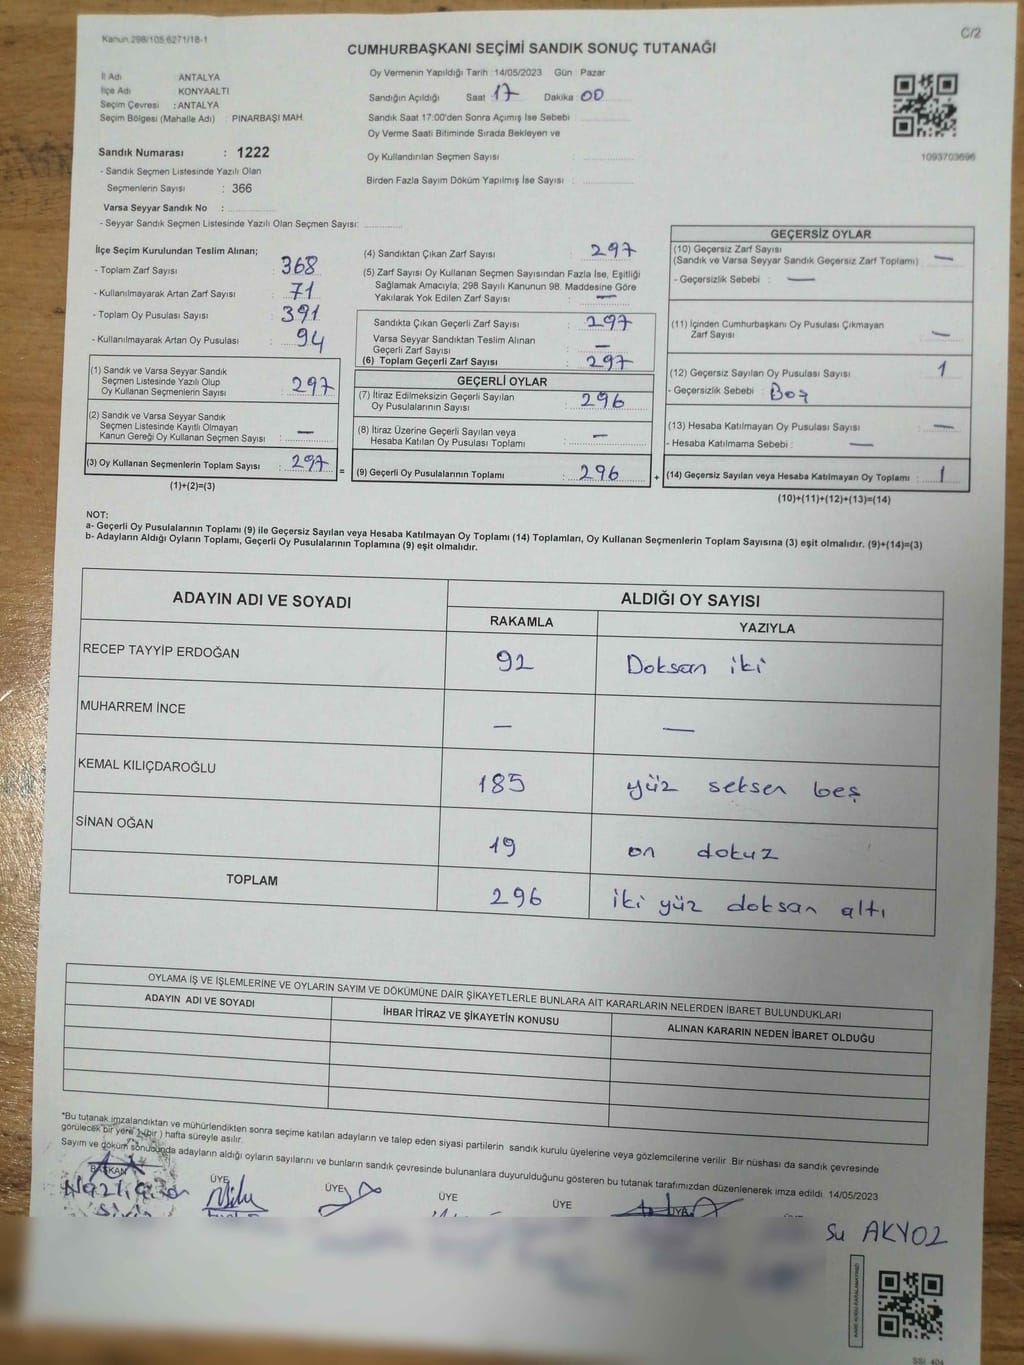 Kanun 298/105 6271/18-1
C/2
CUMHURBAŞKANI SEÇİMİ SANDIK SONUÇ TUTANAĞI
İl Adı ANTALYA
İlçe Adı KONYAALTI
Seçim Çevresi : ANTALYA
Seçim Bölgesi (Mahalle Adı) : PINARBAŞI MAH.
Oy Vermenin Yapıldığı Tarih :14/05/2023 Gün : Pazar
Sandığın Açıldığı Saat : 17 Dakika 00
Sandık Saat 17:00'den Sonra Açımış İse Sebebi
Oy Verme Saati Bitiminde Sırada Bekleyen ve
Oy Kullandırılan Seçmen Sayısı :
Birden Fazla Sayım Döküm Yapılmış İse Sayısı :
1093703696
Sandık Numarası : 1222
- Sandık Seçmen Listesinde Yazılı Olan
Seçmenlerin Sayısı : 366
Varsa Seyyar Sandık No :
- Seyyar Sandık Seçmen Listesinde Yazılı Olan Seçmen Sayısı:
İlçe Seçim Kurulundan Teslim Alınan;
- Toplam Zarf Sayısı : 368
- Kullanılmayarak Artan Zarf Sayısı : 71
- Toplam Oy Pusulası Sayısı : 391
- Kullanılmayarak Artan Oy Pusulası : 94
(1) Sandık ve Varsa Seyyar Sandık
Seçmen Listesinde Yazılı Olup
Oy Kullanan Seçmenlerin Sayısı : 297
(2) Sandık ve Varsa Seyyar Sandık
Seçmen Listesinde Kayıtlı Olmayan
Kanun Gereği Oy Kullanan Seçmen Sayısı : —
(3) Oy Kullanan Seçmenlerin Toplam Sayısı : 297 =
(1)+(2)=(3)
(4) Sandıktan Çıkan Zarf Sayısı : 297
(5) Zarf Sayısı Oy Kullanan Seçmen Sayısından Fazla İse, Eşitliği
Sağlamak Amacıyla; 298 Sayılı Kanunun 98. Maddesine Göre
Yakılarak Yok Edilen Zarf Sayısı : —
Sandıkta Çıkan Geçerli Zarf Sayısı : 297
Varsa Seyyar Sandıktan Teslim Alınan
Geçerli Zarf Sayısı : —
(6) Toplam Geçerli Zarf Sayısı : 297
GEÇERLİ OYLAR
(7) İtiraz Edilmeksizin Geçerli Sayılan
Oy Pusulalarının Sayısı : 296
(8) İtiraz Üzerine Geçerli Sayılan veya
Hesaba Katılan Oy Pusulası Toplamı : —
(9) Geçerli Oy Pusulalarının Toplamı : 296 +
GEÇERSİZ OYLAR
(10) Geçersiz Zarf Sayısı
(Sandık ve Varsa Seyyar Sandık Geçersiz Zarf Toplamı) : —
- Geçersizlik Sebebi : —
(11) İçinden Cumhurbaşkanı Oy Pusulası Çıkmayan
Zarf Sayısı : —
(12) Geçersiz Sayılan Oy Pusulası Sayısı : 1
- Geçersizlik Sebebi : Boş
(13) Hesaba Katılmayan Oy Pusulası Sayısı : —
- Hesaba Katılmama Sebebi : —
(14) Geçersiz Sayılan veya Hesaba Katılmayan Oy Toplamı : 1
(10)+(11)+(12)+(13)=(14)
NOT:
a- Geçerli Oy Pusulalarının Toplamı (9) ile Geçersiz Sayılan veya Hesaba Katılmayan Oy Toplamı (14) Toplamları, Oy Kullanan Seçmenlerin Toplam Sayısına (3) eşit olmalıdır. (9)+(14)=(3)
b- Adayların Aldığı Oyların Toplamı, Geçerli Oy Pusulalarının Toplamına (9) eşit olmalıdır.
ADAYIN ADI VE SOYADI ALDIĞI OY SAYISI
RAKAMLA YAZIYLA
RECEP TAYYİP ERDOĞAN 92 Doksan iki
MUHARREM İNCE — —
KEMAL KILIÇDAROĞLU 185 yüz seksen beş
SİNAN OĞAN 19 on dokuz
TOPLAM 296 iki yüz doksan altı
OYLAMA İŞ VE İŞLEMLERİNE VE OYLARIN SAYIM VE DÖKÜMÜNE DAİR ŞİKAYETLERLE BUNLARA AİT KARARLARIN NELERDEN İBARET BULUNDUKLARI
ADAYIN ADI VE SOYADI İHBAR İTİRAZ VE ŞİKAYETİN KONUSU ALINAN KARARIN NEDEN İBARET OLDUĞU
*Bu tutanak imzalandıktan ve mühürlendikten sonra seçime katılan adayların ve talep eden siyasi partilerin sandık kurulu üyelerine veya gözlemcilerine verilir. Bir nüshası da sandık çevresinde
görülecek bir yere 1 (bir) hafta süreyle asılır.
Sayım ve döküm sonucunda adayların aldığı oyların sayılarını ve bunların sandık çevresinde bulunanlara duyurulduğunu gösteren bu tutanak tarafımızdan düzenlenerek imza edildi. 14/05/2023
BAŞKAN ÜYE ÜYE ÜYE ÜYE ÜYE
Su AKYOZ